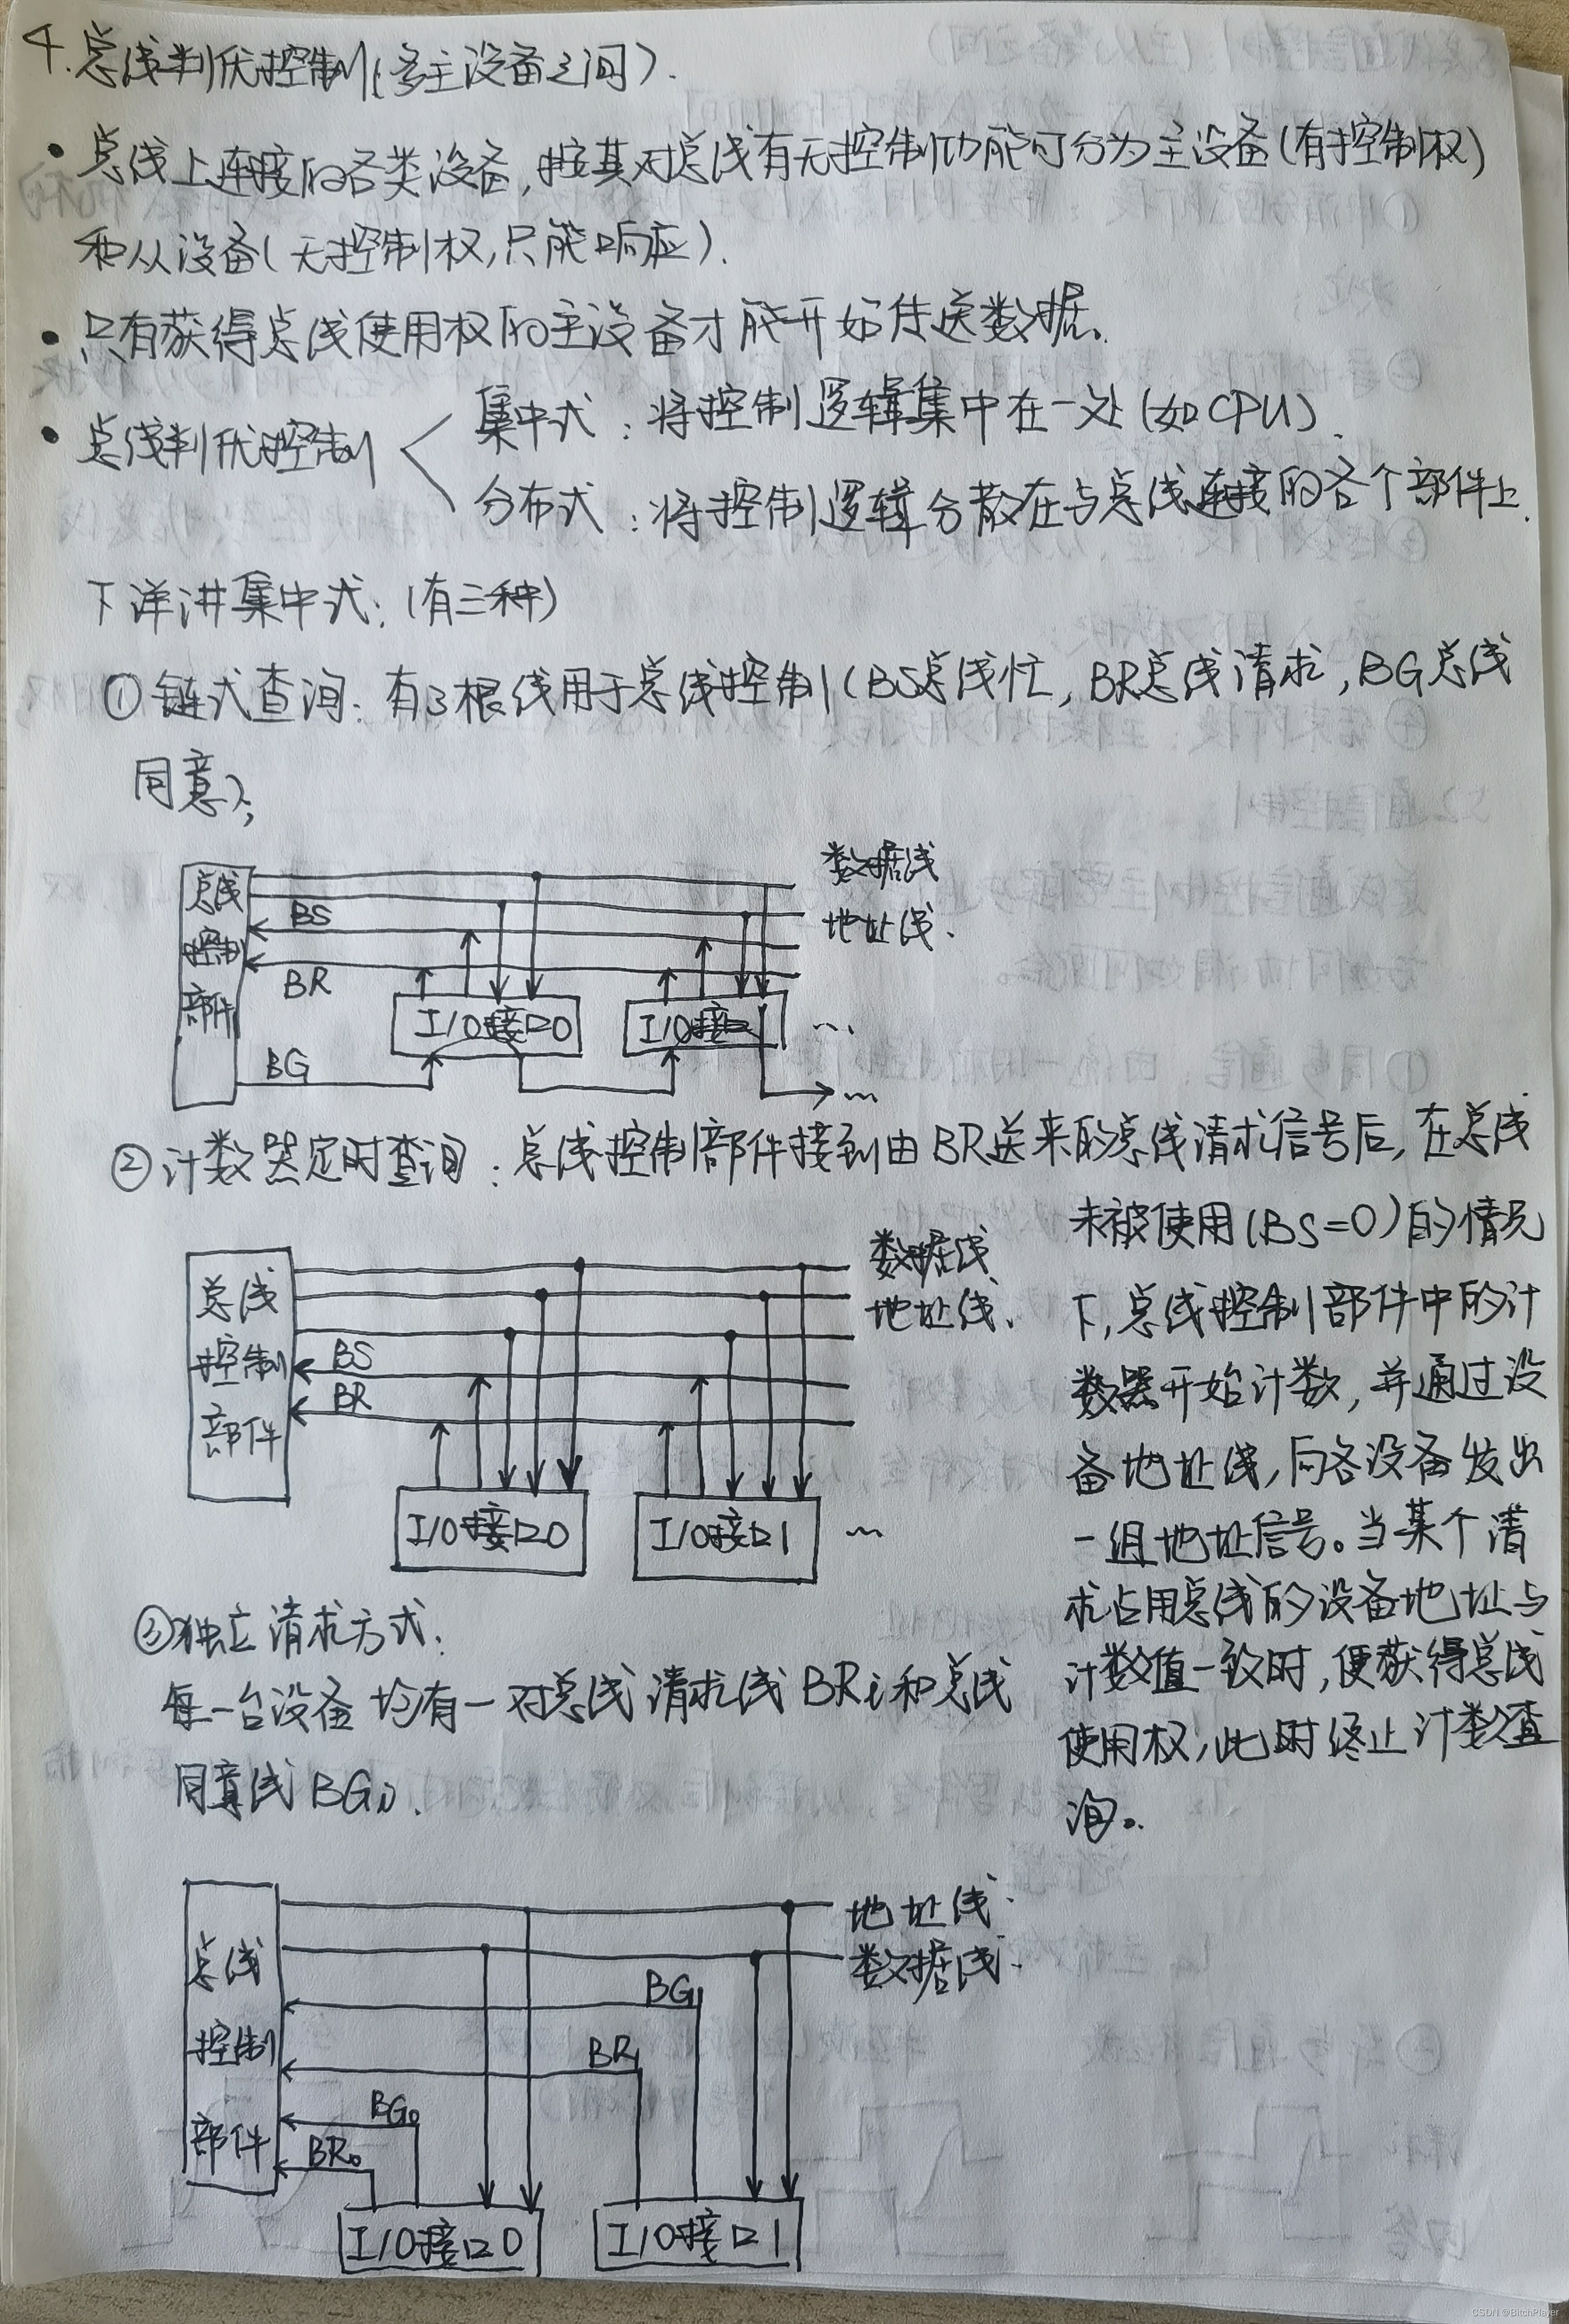 4.总线判优控制(多主设备之间).
• 总线上连接的各类设备,按其对总线有无控制功能可分为主设备(有控制权)
和从设备(无控制权,只能响应).
• 只有获得总线使用权的主设备才能开始传送数据。
• 总线判优控制
集中式:将控制逻辑集中在一处(如CPU).
分布式:将控制逻辑分散在与总线连接的各个部件上.
下详讲集中式:(有三种)
①链式查询:有3根线用于总线控制(BS总线忙,BR总线请求,BG总线
同意);
数据线
地址线.
总线
控制
部件
BS
BR
BG
I/O接口0
I/O接口1
...
...
②计数器定时查询:总线控制部件接到由BR送来的总线请求信号后,在总线
未被使用(BS=0)的情况
下,总线控制部件中的计
数器开始计数,并通过设
备地址线,向各设备发出
一组地址信号。当某个请
求占用总线的设备地址与
计数值一致时,便获得总线
使用权,此时终止计数查
询。
数据线
地址线.
总线
控制
部件
BS
BR
I/O接口0
I/O接口1
...
③独立请求方式:
每一台设备均有一对总线请求线BRi和总线
同意线BGi.
地址线.
数据线.
总线
控制
部件
BG1
BR1
BG0
BR0
I/O接口0
I/O接口1
CSDN @BitchPlayer